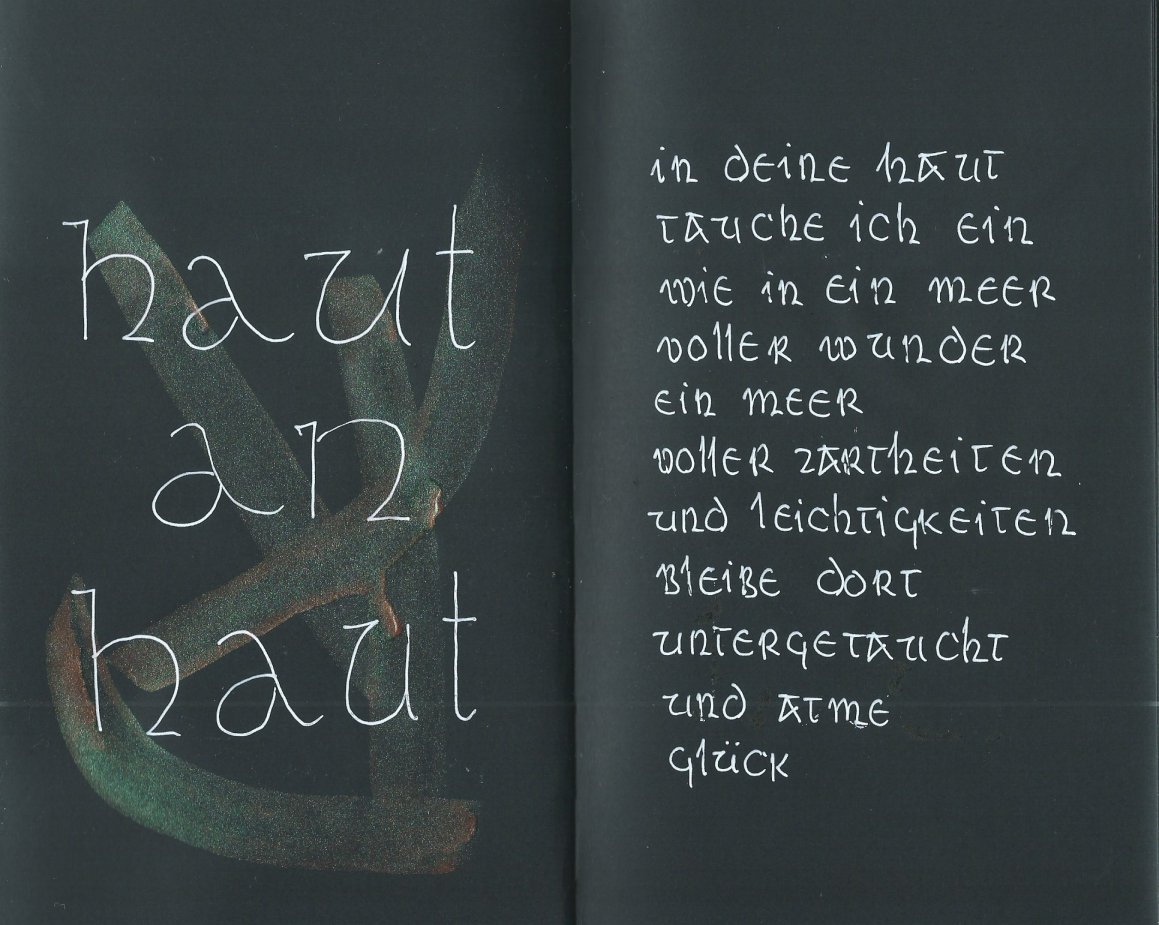 haut
an
haut
in deine haut
tauche ich ein
wie in ein meer
voller wunder
ein meer
voller zartheiten
und leichtigkeiten
bleibe dort
untergetaucht
und atme
glück